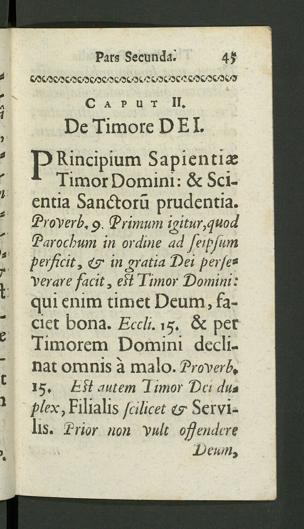 Pars Secunda. 45
CAPUT II.
De Timore DEI.
PRincipium Sapientiæ
Timor Domini: & Sci-
entia Sanctorũ prudentia.
Proverb. 9. Primum igitur, quod
Parochum in ordine ad seipsum
perficit, & in gratia Dei perse-
verare facit, est Timor Domini:
qui enim timet Deum, fa-
ciet bona. Eccli. 15. & per
Timorem Domini decli-
nat omnis à malo. Proverb.
15. Est autem Timor Dei du-
plex, Filialis scilicet & Servi-
lis. Prior non vult offendere
Deum,